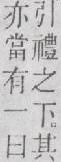 引禮之下其
亦當有一曰